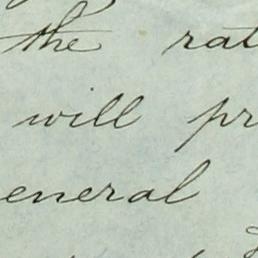 the rat
will pr
eneral